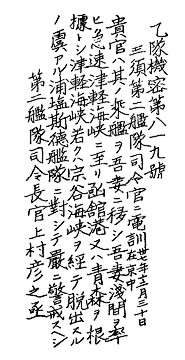 乙隊機密第八一九號
三須第二艦隊司令官ニ電訓 卅七年十二月三十日
在京中
貴官ハ其ノ乘艦ヲ吾妻ニ移シ吾妻淺間ヲ率
ヒ急速津輕海峽ニ至リ函館港又ハ青森ヲ根
據トシ津輕海峽若クハ宗谷海峽ヲ経テ脱出スル
ノ虞アル浦塩斯德艦隊ニ對シテ嚴ニ警戒スヘシ
第二艦隊司令長官上村彦之丞